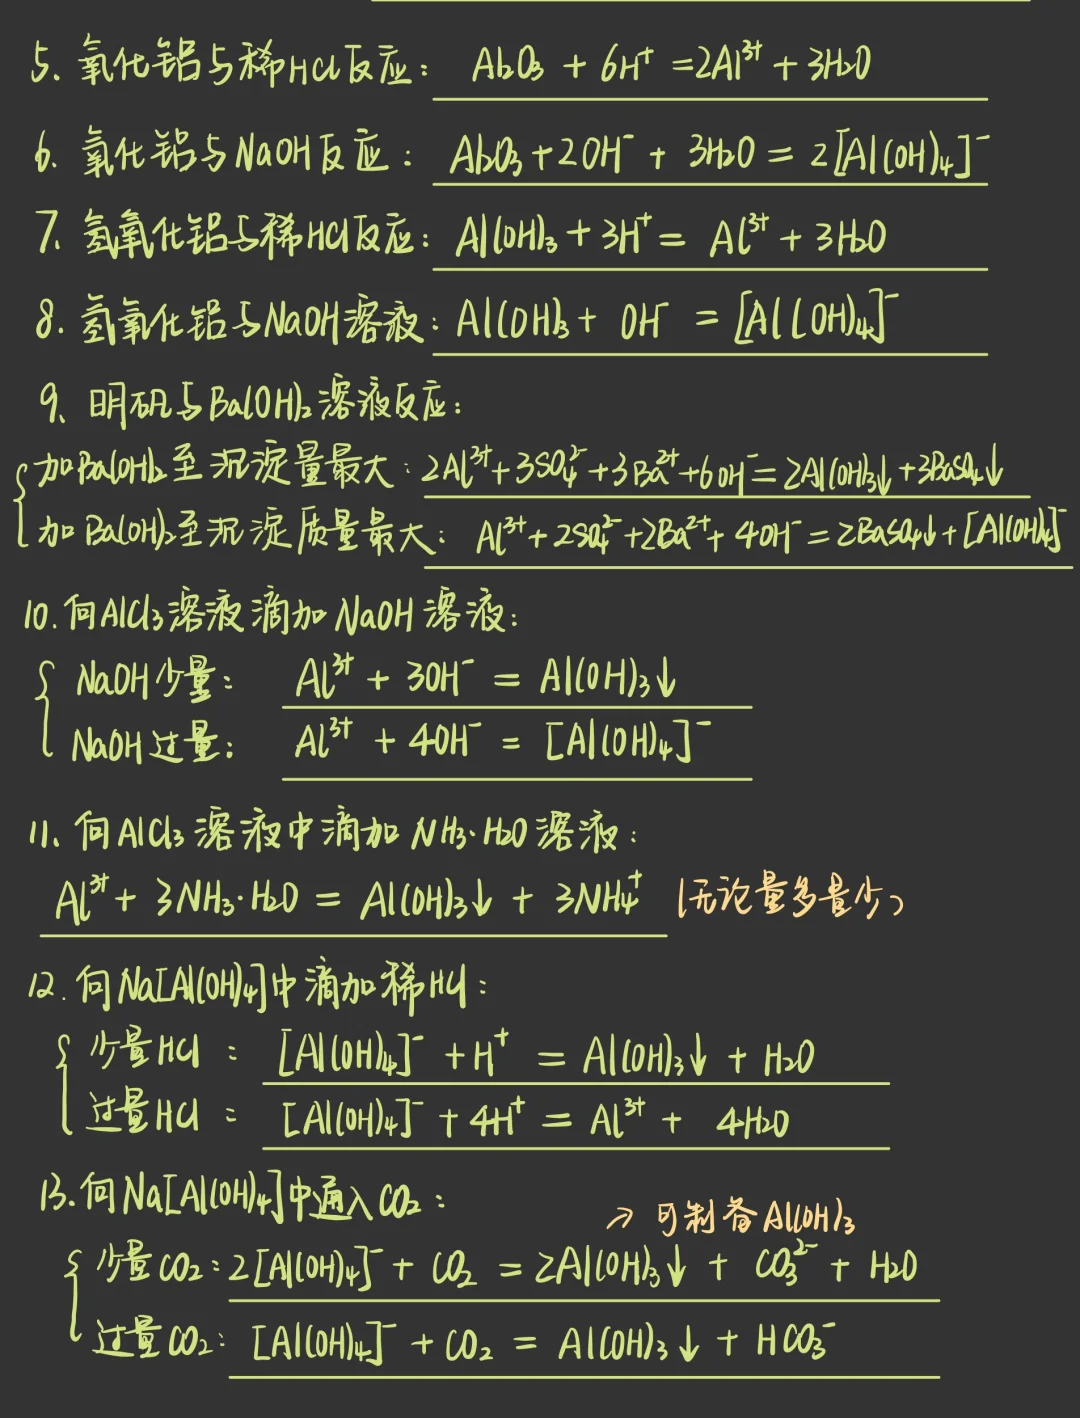 5. 氧化铝与稀HCl反应: Al₂O₃ + 6H⁺ =2Al³⁺ + 3H₂O
6. 氧化铝与NaOH反应: Al₂O₃+2OH⁻ + 3H₂O = 2[Al(OH)₄]⁻
7. 氢氧化铝与稀HCl反应: Al(OH)₃ + 3H⁺ = Al³⁺ + 3H₂O
8. 氢氧化铝与NaOH溶液: Al(OH)₃ + OH⁻ = [Al(OH)₄]⁻
9. 明矾与Ba(OH)₂溶液反应:
加Ba(OH)₂至沉淀量最大: 2Al³⁺+3SO₄²⁻+3Ba²⁺+6OH⁻=2Al(OH)₃↓+3BaSO₄↓
加Ba(OH)₂至沉淀质量最大: Al³⁺+2SO₄²⁻+2Ba²⁺+4OH⁻=2BaSO₄↓+[Al(OH)₄]⁻
10. 向AlCl₃溶液滴加NaOH溶液:
NaOH少量: Al³⁺ + 3OH⁻ = Al(OH)₃↓
NaOH过量: Al³⁺ + 4OH⁻ = [Al(OH)₄]⁻
11. 向AlCl₃溶液中滴加NH₃·H₂O溶液:
Al³⁺ + 3NH₃·H₂O = Al(OH)₃↓ + 3NH₄⁺ (无论量多量少)
12. 向Na[Al(OH)₄]中滴加稀HCl:
少量HCl: [Al(OH)₄]⁻ + H⁺ = Al(OH)₃↓ + H₂O
过量HCl: [Al(OH)₄]⁻ + 4H⁺ = Al³⁺ + 4H₂O
13. 向Na[Al(OH)₄]中通入CO₂:
→ 可制备Al(OH)₃
少量CO₂: 2[Al(OH)₄]⁻ + CO₂ = 2Al(OH)₃↓ + CO₃²⁻ + H₂O
过量CO₂: [Al(OH)₄]⁻ + CO₂ = Al(OH)₃↓ + HCO₃⁻